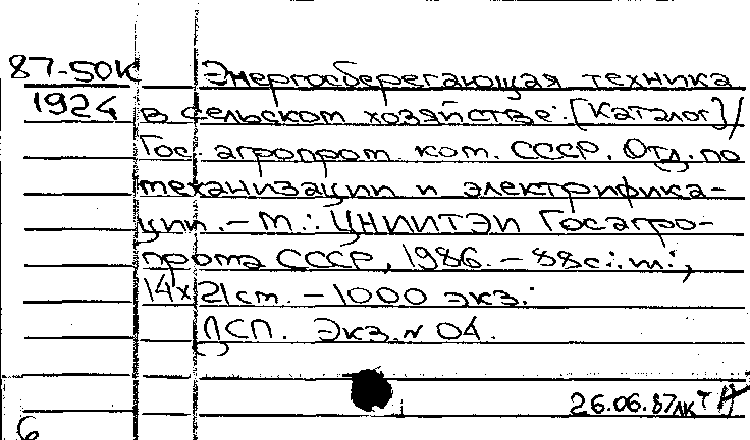 87-50К Энергосберегающая техника
1924 в сельском хозяйстве: [Каталог] /
Гос. агропром. ком. СССР. Отд. по
механизации и электрифика-
ции. – М.: ЦНИИТЭИ Госагро-
прома СССР, 1986. – 88с.: ил.;
14×21 см. – 1000 экз.
ДСП. Экз. № 04.
26.06.87
6